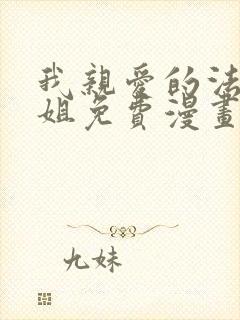 我親愛的法
姐免費漫畫
九妹